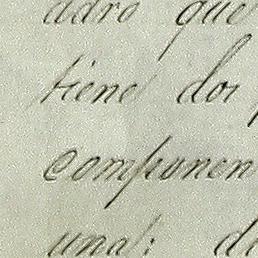 adro que
tiene dos
componen
una; d